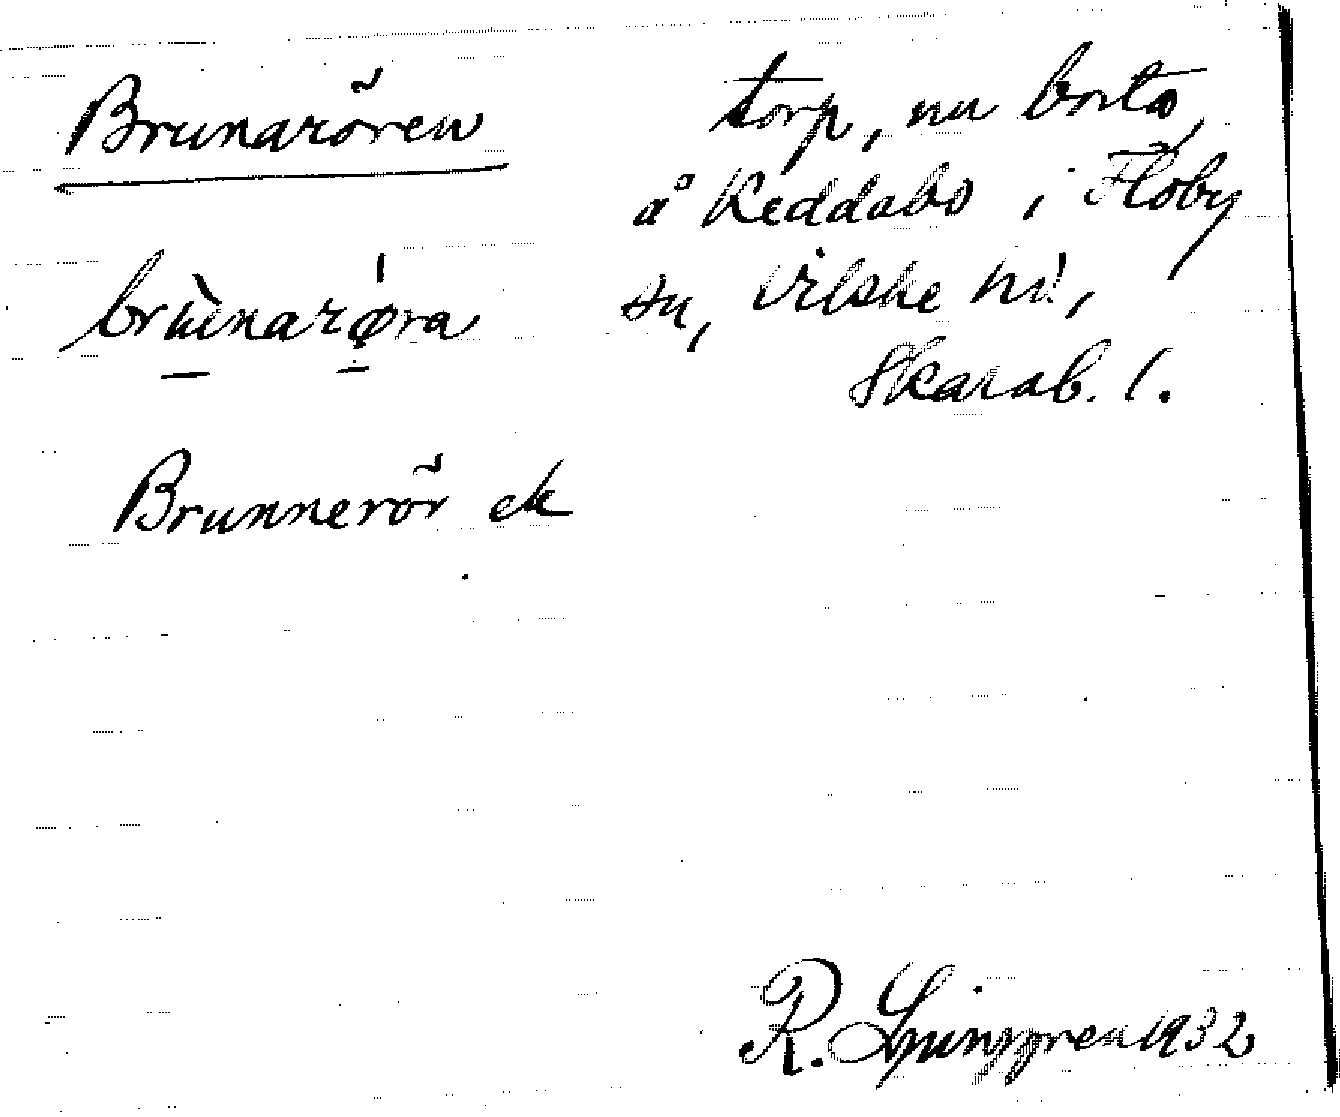 Brunarören
torp, nu borta,
å Keddabo i Floby
sn, Vilske hd,
Skarab. l.
brùnarøra
Brunnerör ek
R. Ljunggren 1932